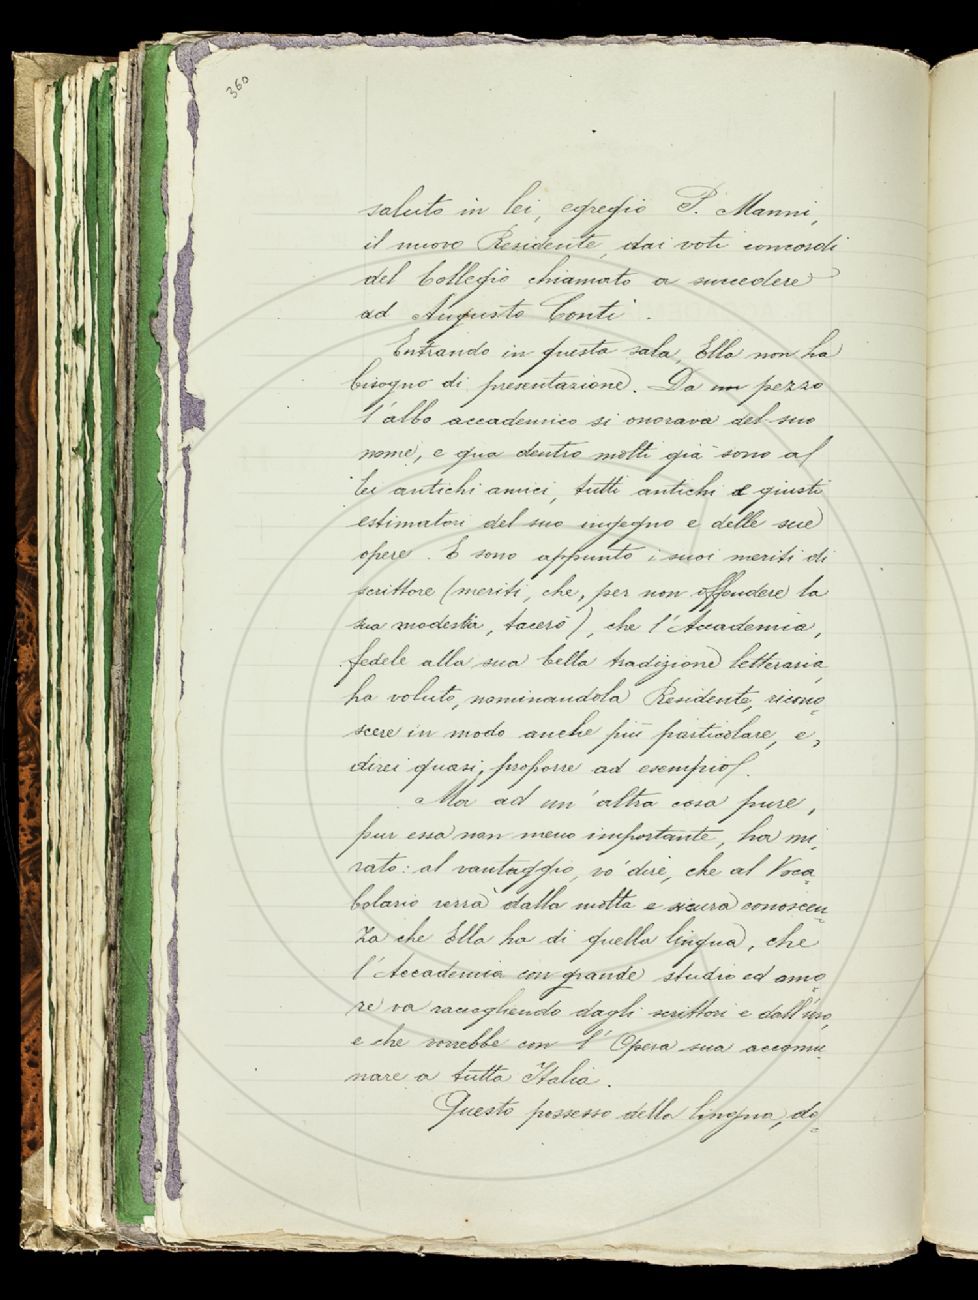 360
saluto in lei, egregio P. Manni,
il nuovo Residente, dai voti concordi
del Collegio chiamato a succedere
ad Augusto Conti.
Entrando in questa sala, Ella non ha
bisogno di presentazione. Da un pezzo
l'albo accademico si onorava del suo
nome, e qua dentro molti già sono di
lei antichi amici, tutti antichi e giusti
estimatori del suo ingegno e delle sue
opere. E sono appunto i suoi meriti di
scrittore (meriti, che, per non offendere la
sua modestia, tacerò), che l'Accademia,
fedele alla sua bella tradizione letteraria,
ha voluto, nominandola Residente, ricono=
scere in modo anche più particolare, e,
direi quasi, proporre ad esempio.
Ma ad un'altra cosa pure,
pur essa non meno importante, ha mi=
rato: al vantaggio, vo' dire, che al Voca=
bolario verrà dalla molta e sicura conoscen=
za che Ella ha di quella lingua, che
l'Accademia con grande studio ed amo=
re va raccogliendo dagli scrittori e dall'uso,
e che vorrebbe con l'Opera sua accomu=
nare a tutta Italia.
Questo possesso della lingua, do=